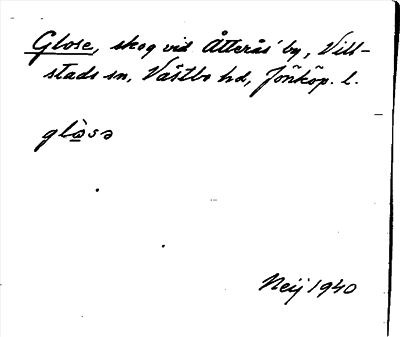 Glose, skog vid Åtterås by, Vill-
stads sn, Västbo hd, Jönköp. l.
glò̲sə
Neij 1940